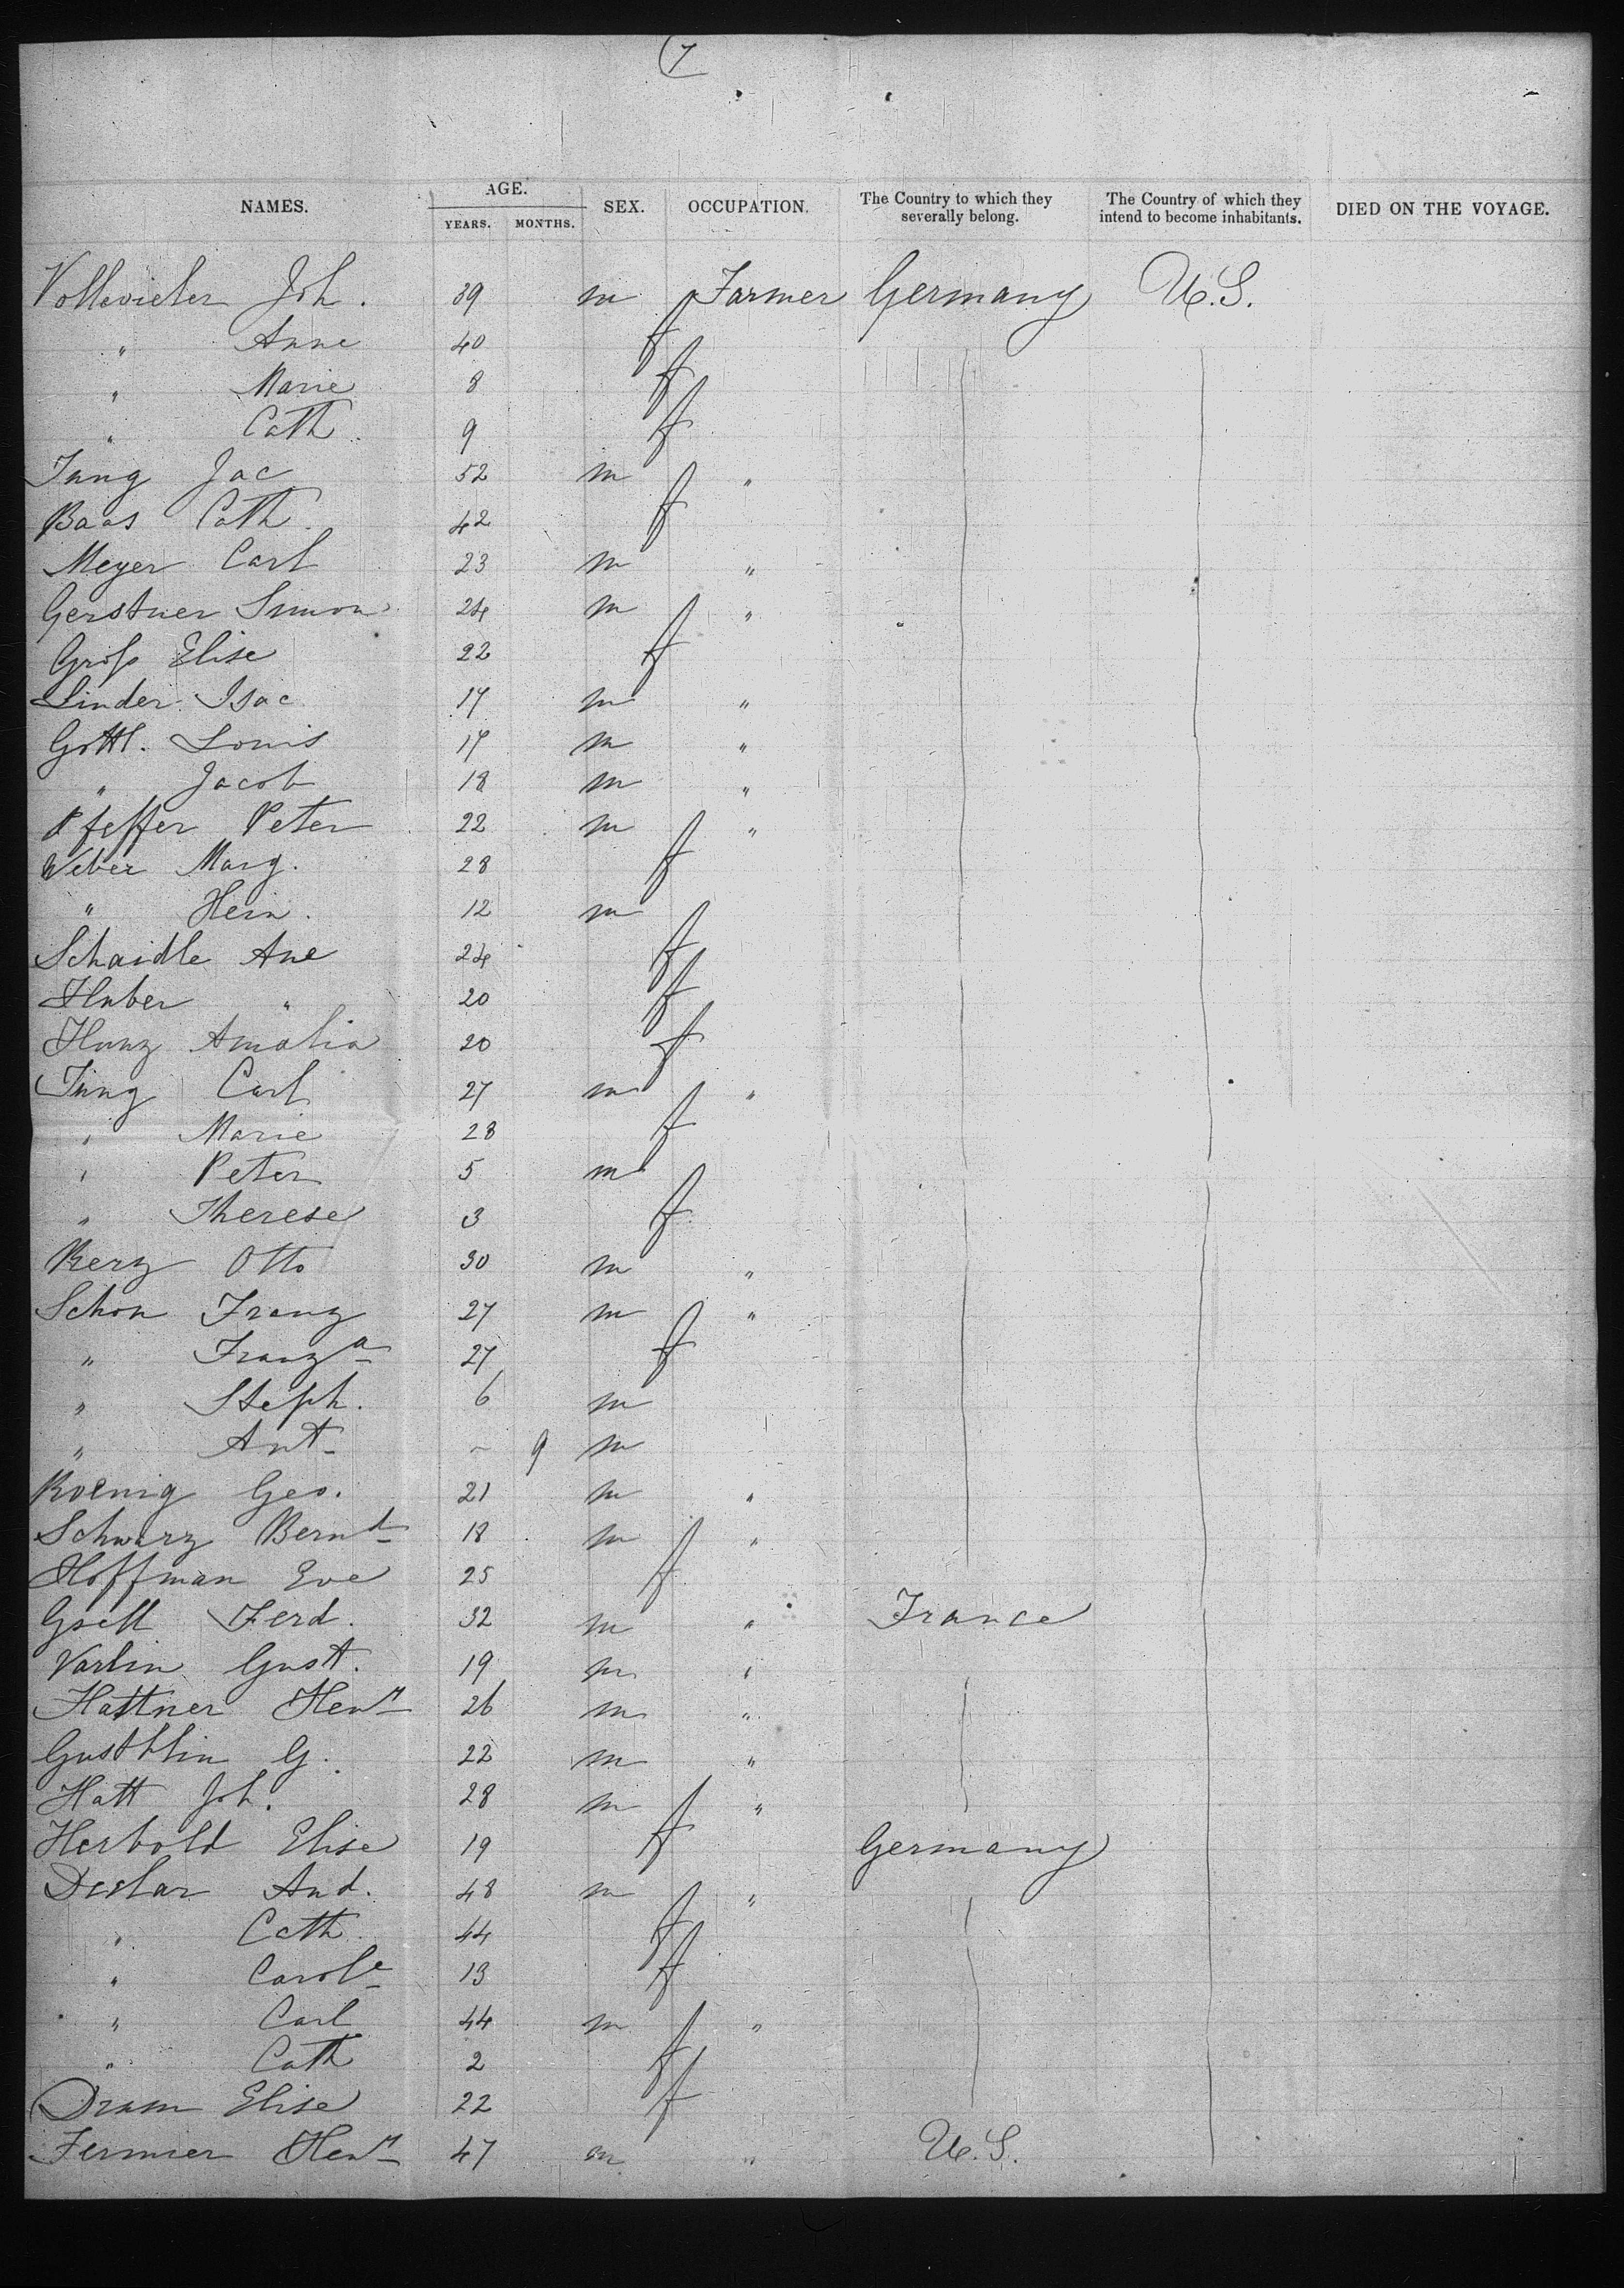 7
NAMES. AGE. YEARS. MONTHS. SEX. OCCUPATION. The Country to which they severally belong. The Country of which they intend to become inhabitants. DIED ON THE VOYAGE.
Joh. 39 m Farmer Germany U.S.
" Anne 40 f
" Marie 8 f
" Cath. 9 f
Jung Jac 52 m "
Baas Cath. 42 f
Meyer Carl 23 m "
Gerstner Simon 24 m "
Groß Elise 22 f
Linder Isac 17 m "
Gottl. Louis 17 m "
" Jacob 18 m "
Pfeffer Peter 22 m "
Weber Marg. 28 f
" Hein. 12 m
Schaidle Ane 24 f
Huber " 20 f
Hunz Amalia 20 f
Jung Carl 27 m "
" Marie 28 f
" Peter 5 m
" Therese 3 f
Kerz Otto 30 m "
Schon Franz 27 m "
" Franza 27 f
" Steph. 6 m
" Ant - 9 m
Koenig Geo. 21 m "
Schwarz Bernd 18 m "
Hoffman Eve 25 f
Gsell Ferd. 32 m " France
Varlin Gust. 19 m "
Hattner Heny 26 m "
G. 22 m "
Hatt Joh. 28 m "
Herbold Elise 19 f Germany
And. 48 m "
" Cath. 44 f
" Carole 13 f
" Carl 44 m "
" Cath 2 f
Dram Elise 22 f
Fermier Heny 47 m " U.S.